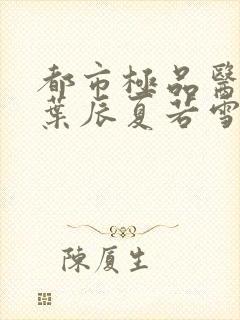 都市極品醫
葉辰夏若雪
陳厦生